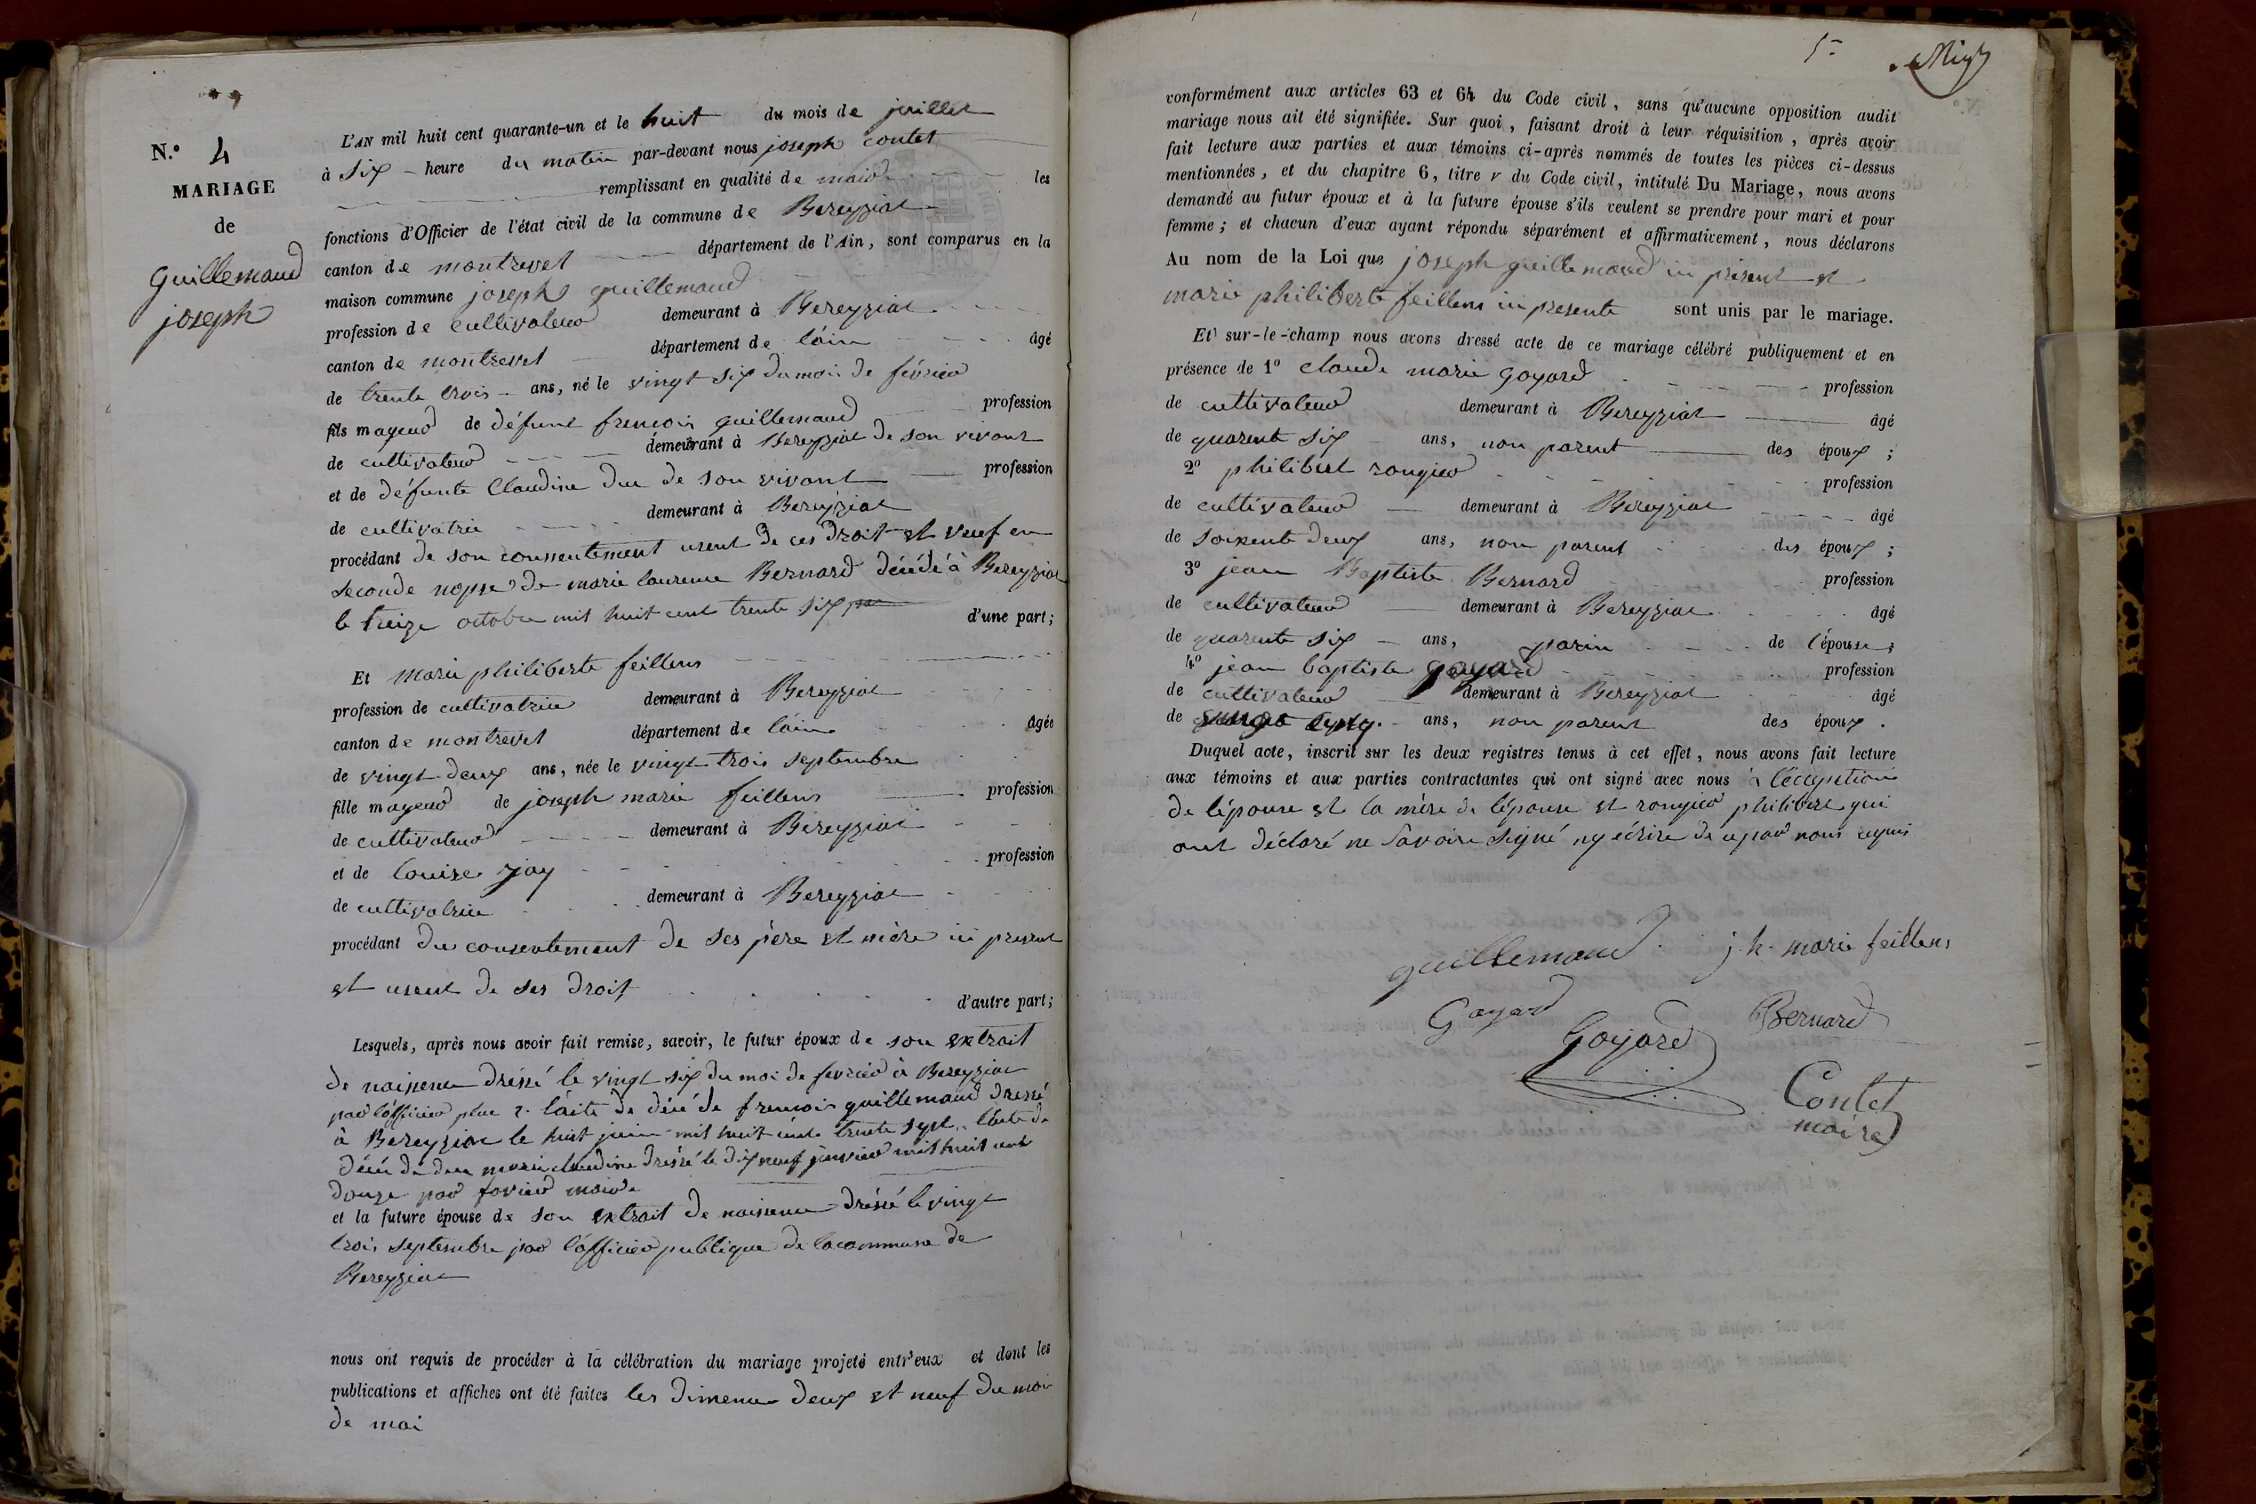 N.o 4
MARIAGE
de
Guillemaud
joseph
L'AN mil huit cent quarante-un et le huit du mois de juillet
à six heure du matin par-devant nous joseph contet
remplissant en qualité de maire les
fonctions d'Officier de l'état civil de la commune de Bereyziat
canton de montrevel département de l'Ain, sont comparus en la
maison commune joseph guillemaud
profession de cultivateur demeurant à Bereyziat
canton de montrevel département de l'áin âgé
de trente trois ans, né le vingt six du mois de février
fils mageur de défunt francois guillemaud profession
de cultivateur demeurant à Bereyziat de son vivant
et de défunte Claudine duc de son vivant profession
de cultivatrice demeurant à Bereyziat
procédant de son consentement usent de ces droit et veuf en
seconde nopse de marie laurence Bernard décédé à Bereyziat
le treize octobre mil huit cent trente six d'une part;
Et marie philiberte feillens
profession de cultivatrice demeurant à Bereyziat
canton de montrevel département de l'áin âgée
de vingt deux ans, née le vingt trois septembre
fille mageur de joseph marie feillens profession
de cultivateur demeurant à Bereyziat
et de louise jay profession
de cultivatrice demeurant à Bereyziat
procédant du consentement de ses père et mère ici present
et usent de ses droit d'autre part;
Lesquels, après nous avoir fait remise, savoir, le futur époux de son extrait
de naissence dréssé le vingt six du moi de fevrier à Bereyziat
par l'officier plue 2. l'aite de décé de francois guillemaud dressé
à Bereyziat le huit juin mil huit cent trente sept. l'aite de
décé de duc marie claudine dréssé le dix neuf janvier mil huit cent
douze par favier maire
et la future épouse de son extrait de naissence dréssé le vingt
trois septembre par l'officier publique de la commune de
Bereyziat
nous ont requis de procéder à la célébration du mariage projeté entr'eux et dont les
publications et affiches ont été faites les dimence deux et neuf du moi
de mai
5
conformément aux articles 63 et 64 du Code civil, sans qu'aucune opposition audit
mariage nous ait été signifiée. Sur quoi, faisant droit à leur réquisition, après avoir
fait lecture aux parties et aux témoins ci-après nommés de toutes les pièces ci-dessus
mentionnées, et du chapitre 6, titre v du Code civil, intitulé Du Mariage, nous avons
demandé au futur époux et à la future épouse s'ils veulent se prendre pour mari et pour
femme; et chacun d'eux ayant répondu séparément et affirmativement, nous déclarons
Au nom de la Loi que joseph guillemaud ici présent et
marie philiberte feillens ici presente sont unis par le mariage.
Et sur-le-champ nous avons dressé acte de ce mariage célébré publiquement et en
présence de 1o claude marie goyard profession
de cultivateur demeurant à Bereyziat âgé
de quarent six ans, non parent des époux;
2o philibert rongier profession
de cultivateur demeurant à Bereyziat âgé
de soixente deux ans, non parent des époux;
3o jean Baptiste Bernard profession
de cultivateur demeurant à Bereyziat âgé
de quarente six ans, parin de l'épouse;
4o jean baptiste goyard profession
de cultivateur demeurant à Bereyziat âgé
de ans, non parent des époux.
Duquel acte, inscrit sur les deux registres tenus à cet effet, nous avons fait lecture
aux témoins et aux parties contractantes qui ont signé avec nous à l'écceptions
de l'épouse et la mère de l'épouse et rongier philibert qui
ont déclaré ne savoire signé ny écrire de ce par nous requis
guillemaud j. h. marie feillens
Goyard Bernard
Goyard
Contet
maire